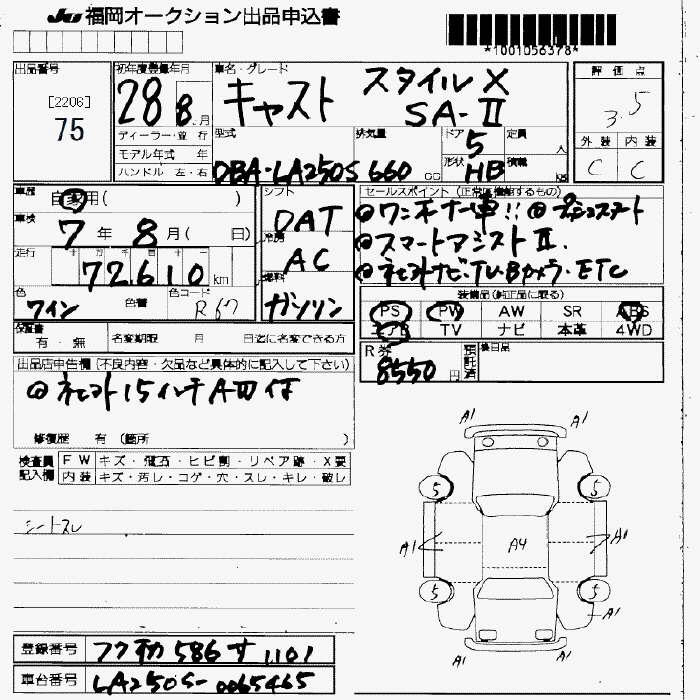 JU 福岡オークション出品申込書
*1001056378*
出品番号
[2206]
75
初年度登録年月
28 8 月
ディーラー・並行
モデル年式 年
ハンドル 左・右
車名・グレード
キャスト スタイルX
SA-II
型式
DBA・LA250S
排気量
660 cc
ドア 5
形状 HB
定員 人
積載 kg
評価点
3.5
外装 内装
C C
車歴
自家用( )
車検
7年 8月( 日)
走行
72,610 km
色
ワイン
色替
色コード
R67
シフト
DAT
冷房
AC
燃料
ガソリン
セールスポイント(正常に機能するもの)
◎ワンオーナー車!! ◎プッシュスタート
◎スマートアシストII.
◎ネセストナビ・TV・Bカメラ・ETC
装備品(純正品に限る)
PS PW AW SR ABS
エアB TV ナビ 本革 4WD
保証書
有・無
名変期限 月 日迄に名変できる方
R券
8550 円
預託済
後日品
出品店申告欄(不良内容・欠品など具体的に記入して下さい)
◎ネセスト15インチAW付
修復歴 有 (箇所 )
検査員記入欄
FW キズ・飛石・ヒビ割・リペア跡・X要
内装 キズ・汚レ・コゲ・穴・スレ・キレ・破レ
シートスレ
A1 A1
5 5
A1 A4 A1
5 5
A1
A1 A1
登録番号 フクオカ 586 す 1101
車台番号 LA250S-0065465